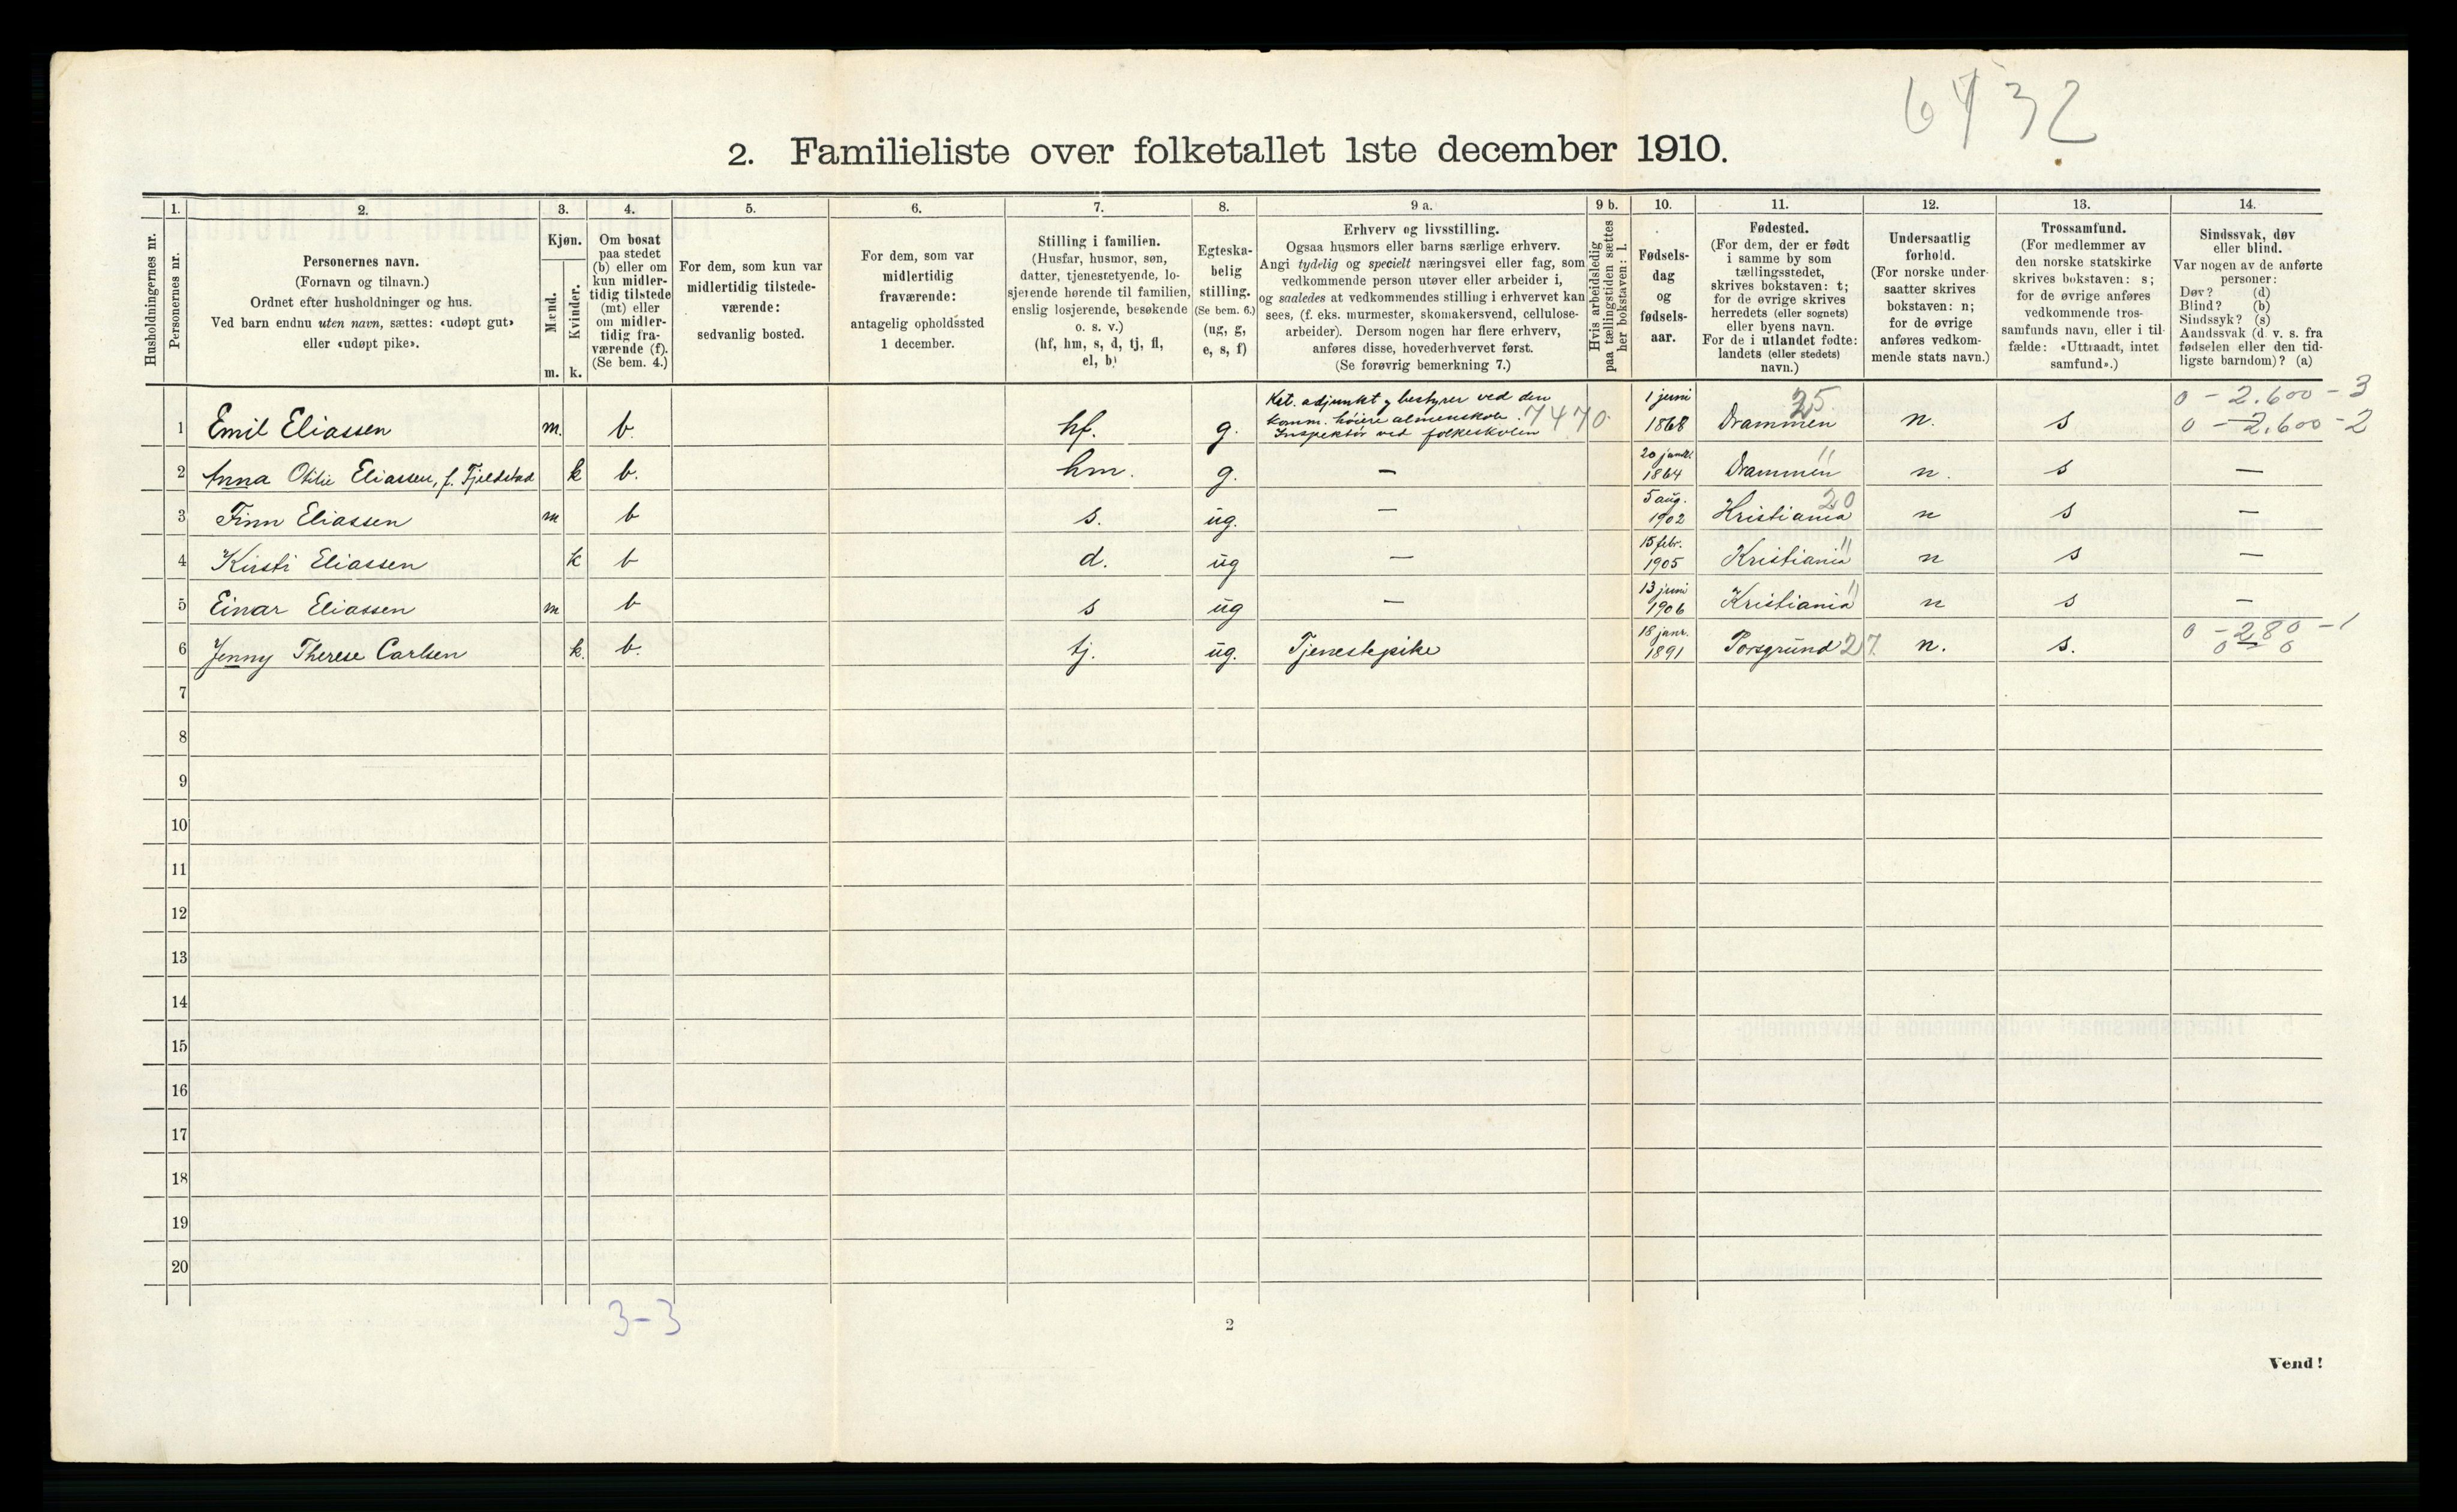 6432
2. Familieliste over folketallet 1ste december 1910.
1. 2. 3. 4. 5. 6. 7. 8. 9 a. 9 b. 10. 11. 12. 13. 14.
Husholdningernes nr.
Personernes nr.
Personernes navn.
(Fornavn og tilnavn.)
Ordnet efter husholdninger og hus.
Ved barn endnu uten navn, sættes: «udøpt gut»
eller «udøpt pike».
Kjøn.
Mænd.
Kvinder.
m. k.
Om bosat
paa stedet
(b) eller om
kun midler-
tidig tilstede
(mt) eller
om midler-
tidig fra-
værende (f).
(Se bem. 4.)
For dem, som kun var
midlertidig tilstede-
værende:
sedvanlig bosted.
For dem, som var
midlertidig
fraværende:
antagelig opholdssted
1 december.
Stilling i familien.
(Husfar, husmor, søn,
datter, tjenestetyende, lo-
sjerende hørende til familien,
enslig losjerende, besøkende
o. s. v.)
(hf, hm, s, d, tj, fl,
el, b)
Egteska-
belig
stilling.
(Se bem. 6.)
(ug, g,
e, s, f)
Erhverv og livsstilling.
Ogsaa husmors eller barns særlige erhverv.
Angi tydelig og specielt næringsvei eller fag, som
vedkommende person utøver eller arbeider i,
og saaledes at vedkommendes stilling i erhvervet kan
sees, (f. eks. murmester, skomakersvend, cellulose-
arbeider). Dersom nogen har flere erhverv,
anføres disse, hovederhvervet først.
(Se forøvrig bemerkning 7.)
Hvis arbeidsledig
paa tællingstiden sættes
her bokstaven: l.
Fødsels-
dag
og
fødsels-
aar.
Fødested.
(For dem, der er født
i samme by som
tællingsstedet,
skrives bokstaven: t;
for de øvrige skrives
herredets (eller sognets)
eller byens navn.
For de i utlandet fødte:
landets (eller stedets)
navn.)
Undersaatlig
forhold.
(For norske under-
saatter skrives
bokstaven: n;
for de øvrige
anføres vedkom-
mende stats navn.)
Trossamfund.
(For medlemmer av
den norske statskirke
skrives bokstaven: s;
for de øvrige anføres
vedkommende tros-
samfunds navn, eller i til-
fælde: «Uttraadt, intet
samfund».)
Sindssvak, døv
eller blind.
Var nogen av de anførte
personer:
Døv? (d)
Blind? (b)
Sindssyk? (s)
Aandssvak (d. v. s. fra
fødselen eller den tid-
ligste barndom)? (a)
Kst. adjunkt & bestyrer ved den 1 juni 25 0 - 2.600 - 3
1 Emil Eliassen m. b. hf. g. komm. høiere almenskole. 7470 1868 Drammen n. s 0 - 2.600 - 2
Inspektør ved folkeskolen
20 janr.
2 Anna Otilie Eliassen, f. Fjeldstad k b. hm. g. – 1864 Drammen " n. s –
5 aug. 20
3 Finn Eliassen m b s. ug. – 1902 Kristiania n s –
15 febr.
4 Kirsti Eliassen k b d. ug – 1905 Kristiania " n s –
13 juni
5 Einar Eliassen m b s ug – 1906 Kristiania " n s –
18 janr. 0 - 280 - 1
6 Jenny Therese Carlsen k. b. tj. ug. Tjenestepike 1891 Porsgrund 27. n. s. 0 0
7
8
9
10
11
12
13
14
15
16
17
18
19
20
3-3
2
Vend!